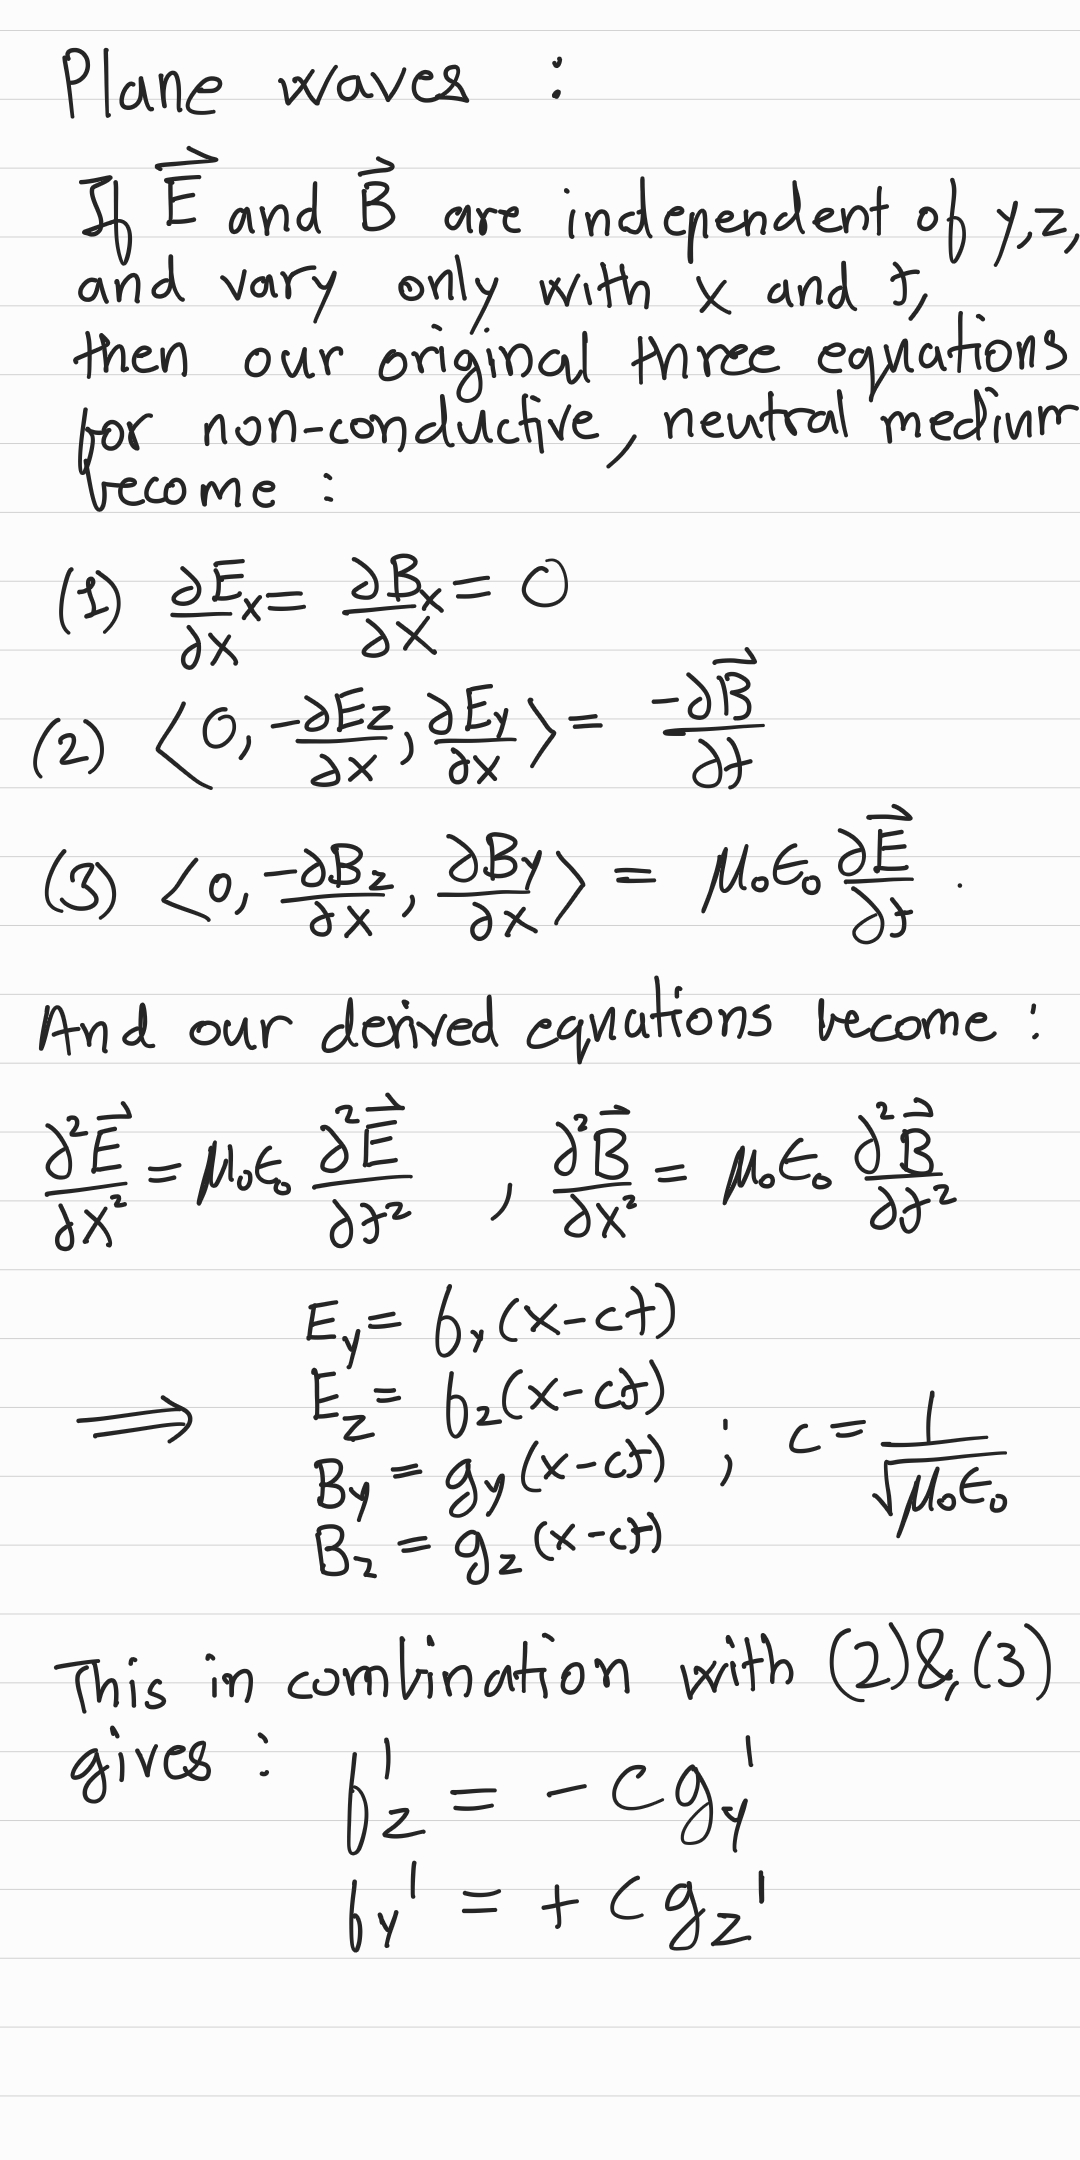 Plane waves :
If E⃗ and B⃗ are independent of y,z,
and vary only with x and t,
then our original three equations
for non-conductive, neutral medium
become :
(1) ∂Eₓ/∂x = ∂Bₓ/∂x = 0
(2) ⟨0, -∂E_z/∂x, ∂E_y/∂x⟩ = -∂B⃗/∂t
(3) ⟨0, -∂B_z/∂x, ∂B_y/∂x⟩ = μ₀ε₀ ∂E⃗/∂t .
And our derived equations become :
∂²E⃗/∂x² = μ₀ε₀ ∂²E⃗/∂t² , ∂²B⃗/∂x² = μ₀ε₀ ∂²B⃗/∂t²
E_y = f_y(x-ct)
E_z = f_z(x-ct)
⟹ B_y = g_y(x-ct) ; c = 1/√μ₀ε₀
B_z = g_z(x-ct)
This in combination with (2)&(3)
gives :
f_z' = - c g_y'
f_y' = + c g_z'